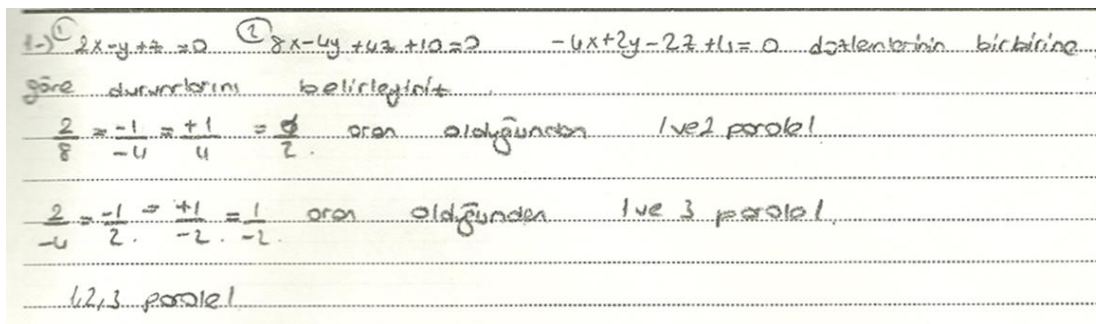 1-) ① 2x-y+z=0 ② 8x-4y+4z+10=0 -4x+2y-2z+4=0 düzlemlerinin birbirine
göre durumlarını belirleyiniz.
2/8 = -1/-4 = +1/4 = 1/2. oran olduğundan 1 ve 2 paralel
2/-4 = -1/2. = +1/-2. = 1/-2. oran olduğundan 1 ve 3 paralel.
1,2,3 paralel